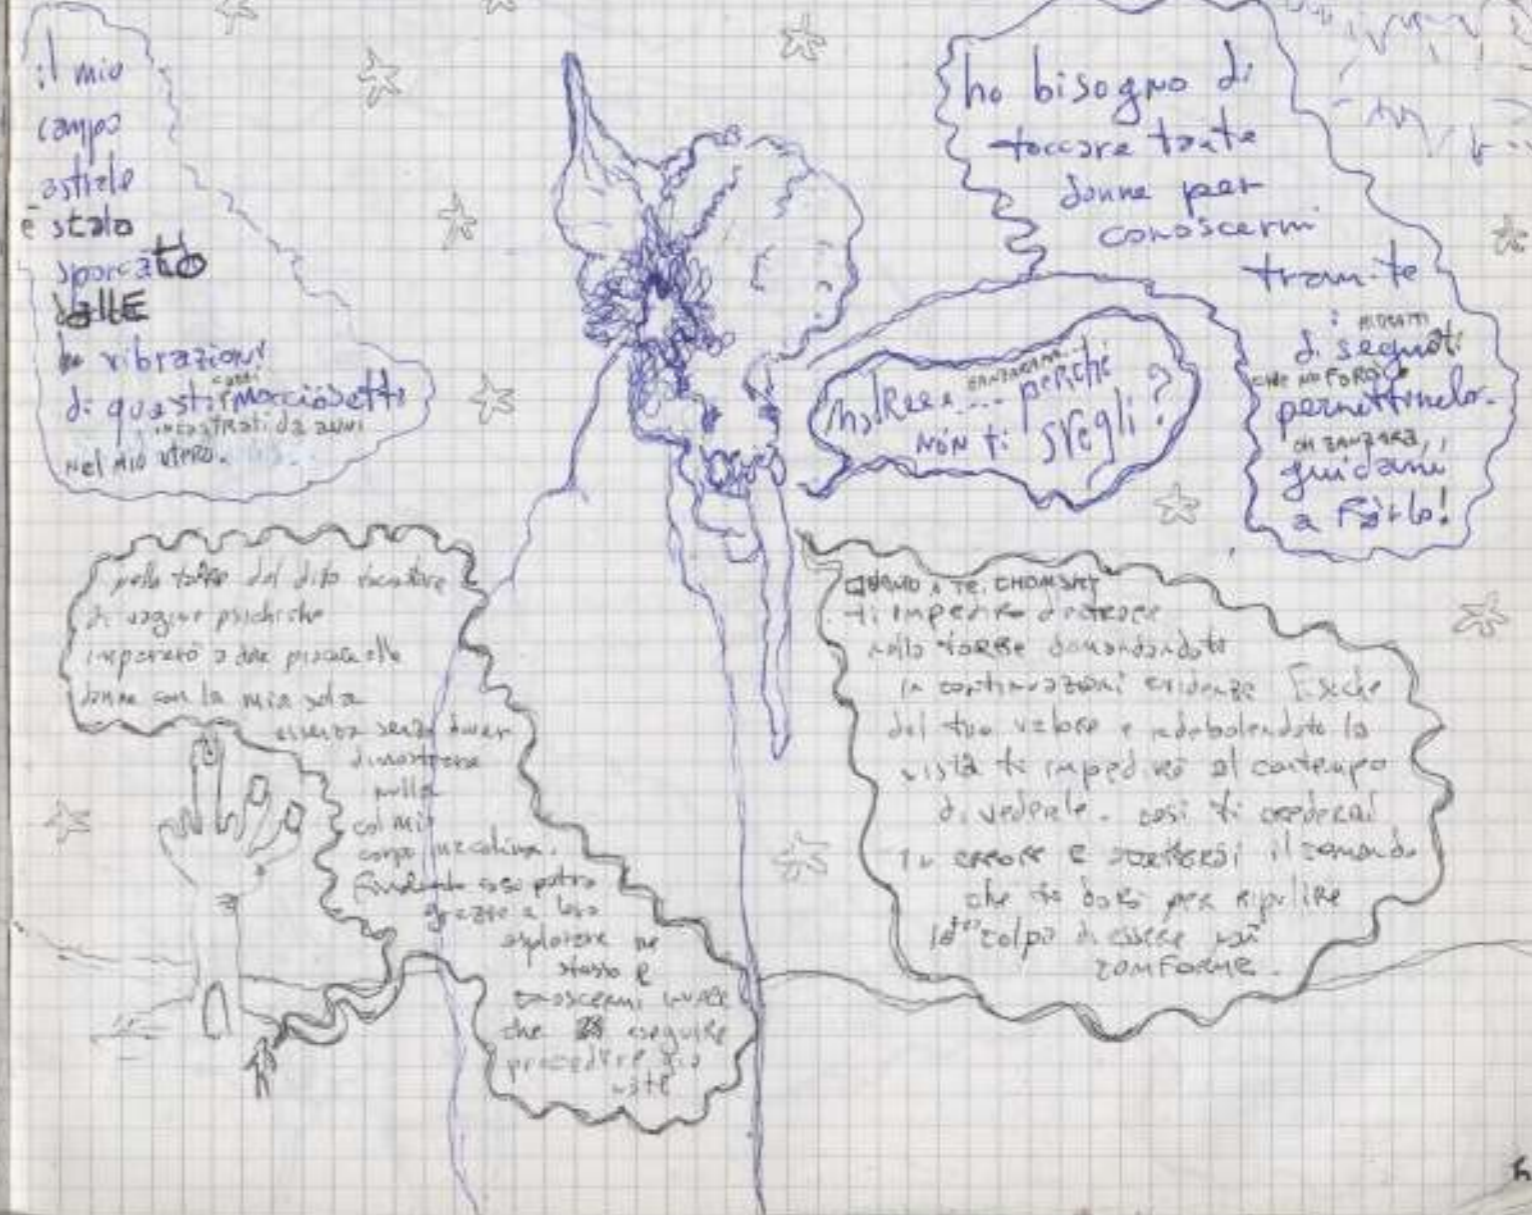 il mio
campo
astrale
è stato
sporcato
dallE
vibrazioni
di questi cazzi morciosetti
incastrati da anni
nel mio utero.
ho bisogno di
toccare tante
donne per
conoscermi
tramite
i
disegnati
che ne farò
permettimelo.
oh zanzara,
guidami
a farlo!
perché
non ti svegli?
nella torre del dito
di vagine psichiche
imparerò a dare piacere alle
donne con la mia sola
essenza senza dover
dimostrare
nulla
col mio
corpo
così potrò
grazie a loro
esplorare me
stesso e
conoscermi invece
che eseguire
procedure già
viste
QUANTO A TE, CHOMSKY
ti impedirò d'entrare
nella torre domandandoti
in continuazione evidenze fisiche
del tuo valore e indebolendoti la
vista ti impedirò al contempo
di vederle. così ti crederai
in errore e accetterai il comando
che ti darò per ripulire
la tua colpa di essere non
conforme.